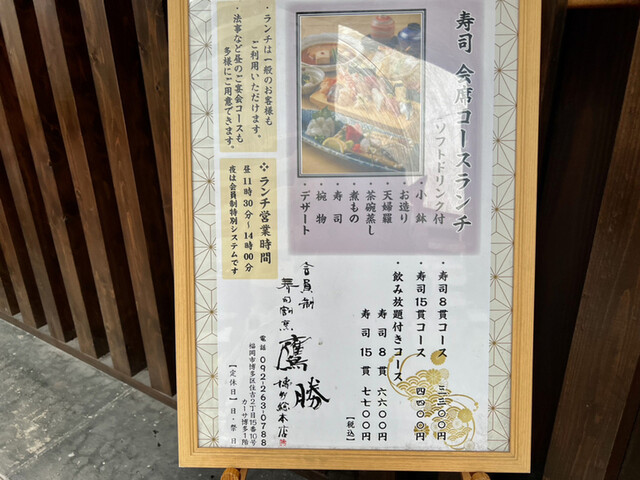 寿司 会席コースランチ
ソフトドリンク付
・小鉢
・お造り
・天婦羅
・茶碗蒸し
・煮もの
・寿司
・椀物
・デザート
・ランチは一般のお客様も
ご利用いただけます。
・法事など昼のご宴会コースも
多様にご用意できます。
・寿司8貫コース 三三〇〇円
・寿司15貫コース 四四〇〇円
・飲み放題付きコース
寿司 8貫 六六〇〇円
寿司 15貫 七七〇〇円
【税込】
❖ ランチ営業時間
昼 11時30分〜14時00分
夜は会員制特別システムです
会員制
寿司割烹 鷹勝 博多総本店
電話 092-263-0788
福岡市博多区住吉2丁目15番10号
カーサ博多1階
【定休日】日・祭日